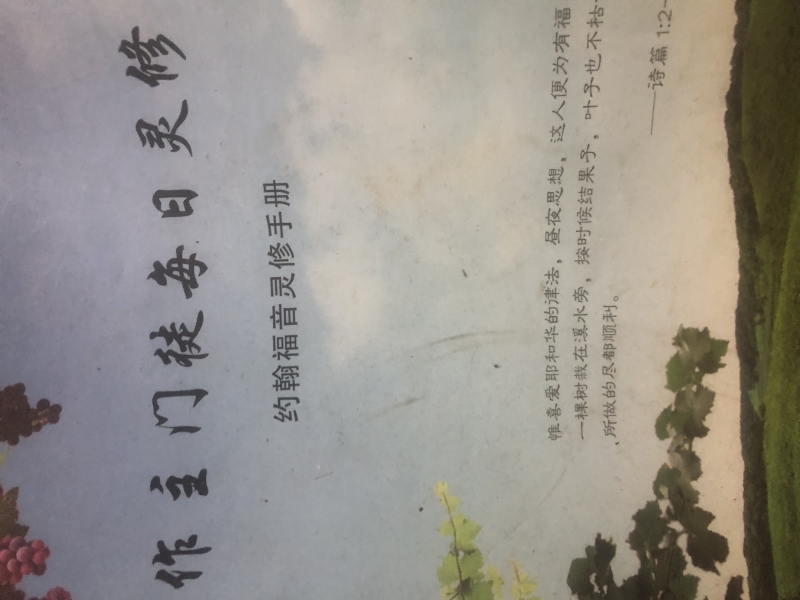 作主门徒每日灵修
约翰福音灵修手册
惟喜爱耶和华的律法，昼夜思想，这人便为有福
一棵树栽在溪水旁，按时候结果子，叶子也不枯
所做的尽都顺利。
——诗篇 1:2-